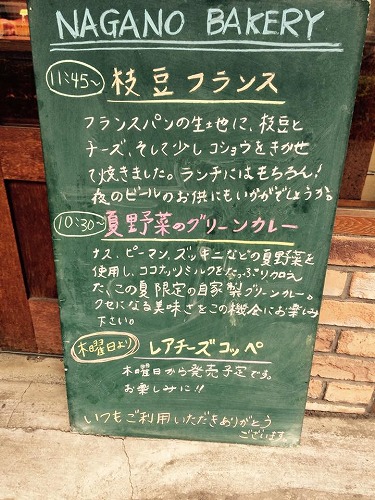 NAGANO BAKERY
11:45~
枝豆フランス
フランスパンの生地に、枝豆と
チーズ、そして少しコショウをきかせ
て焼きました。ランチにはもちろん!
夜のビールのお供にもいかがでしょうか。
10:30~
夏野菜のグリーンカレー
ナス、ピーマン、ズッキーニなどの夏野菜を
使用し、ココナッツミルクをたっぷり加え
た、この夏限定の自家製グリーンカレー。
クセになる美味さをこの機会にお楽しみ
下さい。
木曜日より
レアチーズコッペ
木曜日から発売予定です。
お楽しみに!!
いつもご利用いただきありがとう
ございます。